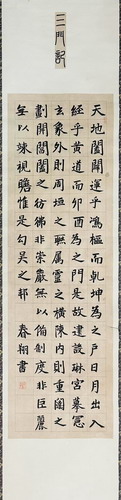 三門記
天地闔闢運乎鴻樞而乾坤為之戶日月出入
經乎黃道而卯酉為之門是故建設琳宮摹憲
玄象外則周垣之聯屬靈之橫陳内則重闥之
劃開閶闔之彷彿非崇嚴無以備制度非巨麗
無以竦視瞻惟是勾吳之邦 春翔書